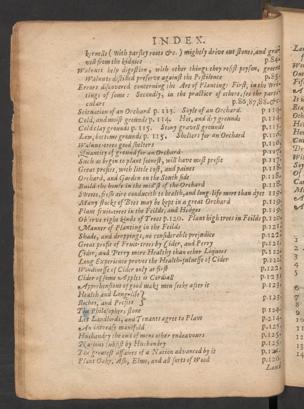 INDEX.
kernells (With parsley roots &c.) mightily drive out stones, and
vell from the kidneys p.84.
Walnuts help digestion, with other things they resist poyson, greene
Walnuts distilled preserve against the Pestilence p.85.
Errors discovered concerning the Art of Planting: First, in the
tings of some: Secondly, in the practice of others, in five parti-
culars p.86,87,88,
Scituation of an Orchard p. 113. Soyle of an Orchard. p.114
Cold, and moist grounds p. 114. Hot, and dry grounds p.114.
Cold clay grounds p. 115. Stony gravell grounds p.115.
Low, bottome grounds p. 115. Shelters for an Orchard p.116.
Walnut-trees good shelters p.116.
Quantity of ground for an Orchard p.117.
Such as begin to plant soonest, will have most profit p.117.
Great profits, with little cost, and paines p.118.
Orchard, and Garden on the South side p.118.
Build the house in the midst of the Orchard p.118.
Sweet, fresh aire conduceth to health, and long-life more than dyet p.119
Many stocks of Bees may be kept in a great Orchard p.119
Plant fruit-trees in the Feilds, and Hedges p.119.
Observe right kinds of Trees p.120. Plant high trees in Feilds p.120.
Manner of Planting in the Feilds p.121.
Shade, and droppings, no considerable prejudice p.121.
Great profit of Fruit-trees by Cider, and Perry p.121.
Cider, and Perry more Healthy than other Liquors p.122.
Long Experience proves the Healthfulnesse of Cider p.122.
Windinesse of Cider only at first p.122.
Cider of some Apples a Cordiall p.123.
Apprehensions of good make men seeke after it p.123.
Health and Long-life } p.123.
Riches, and Profits
The Philosophers stone p.124.
Let Landlords, and Tenants agree to Plant p.124.
An interest manifold p.124.
Husbandry the end of mens other endeavours p.125.
Nations subsist by Husbandry p.125.
The greatest affaires of a Nation advanced by it p.126.
Plant Oake, Ash, Elme, and all sorts of Wood p.126.